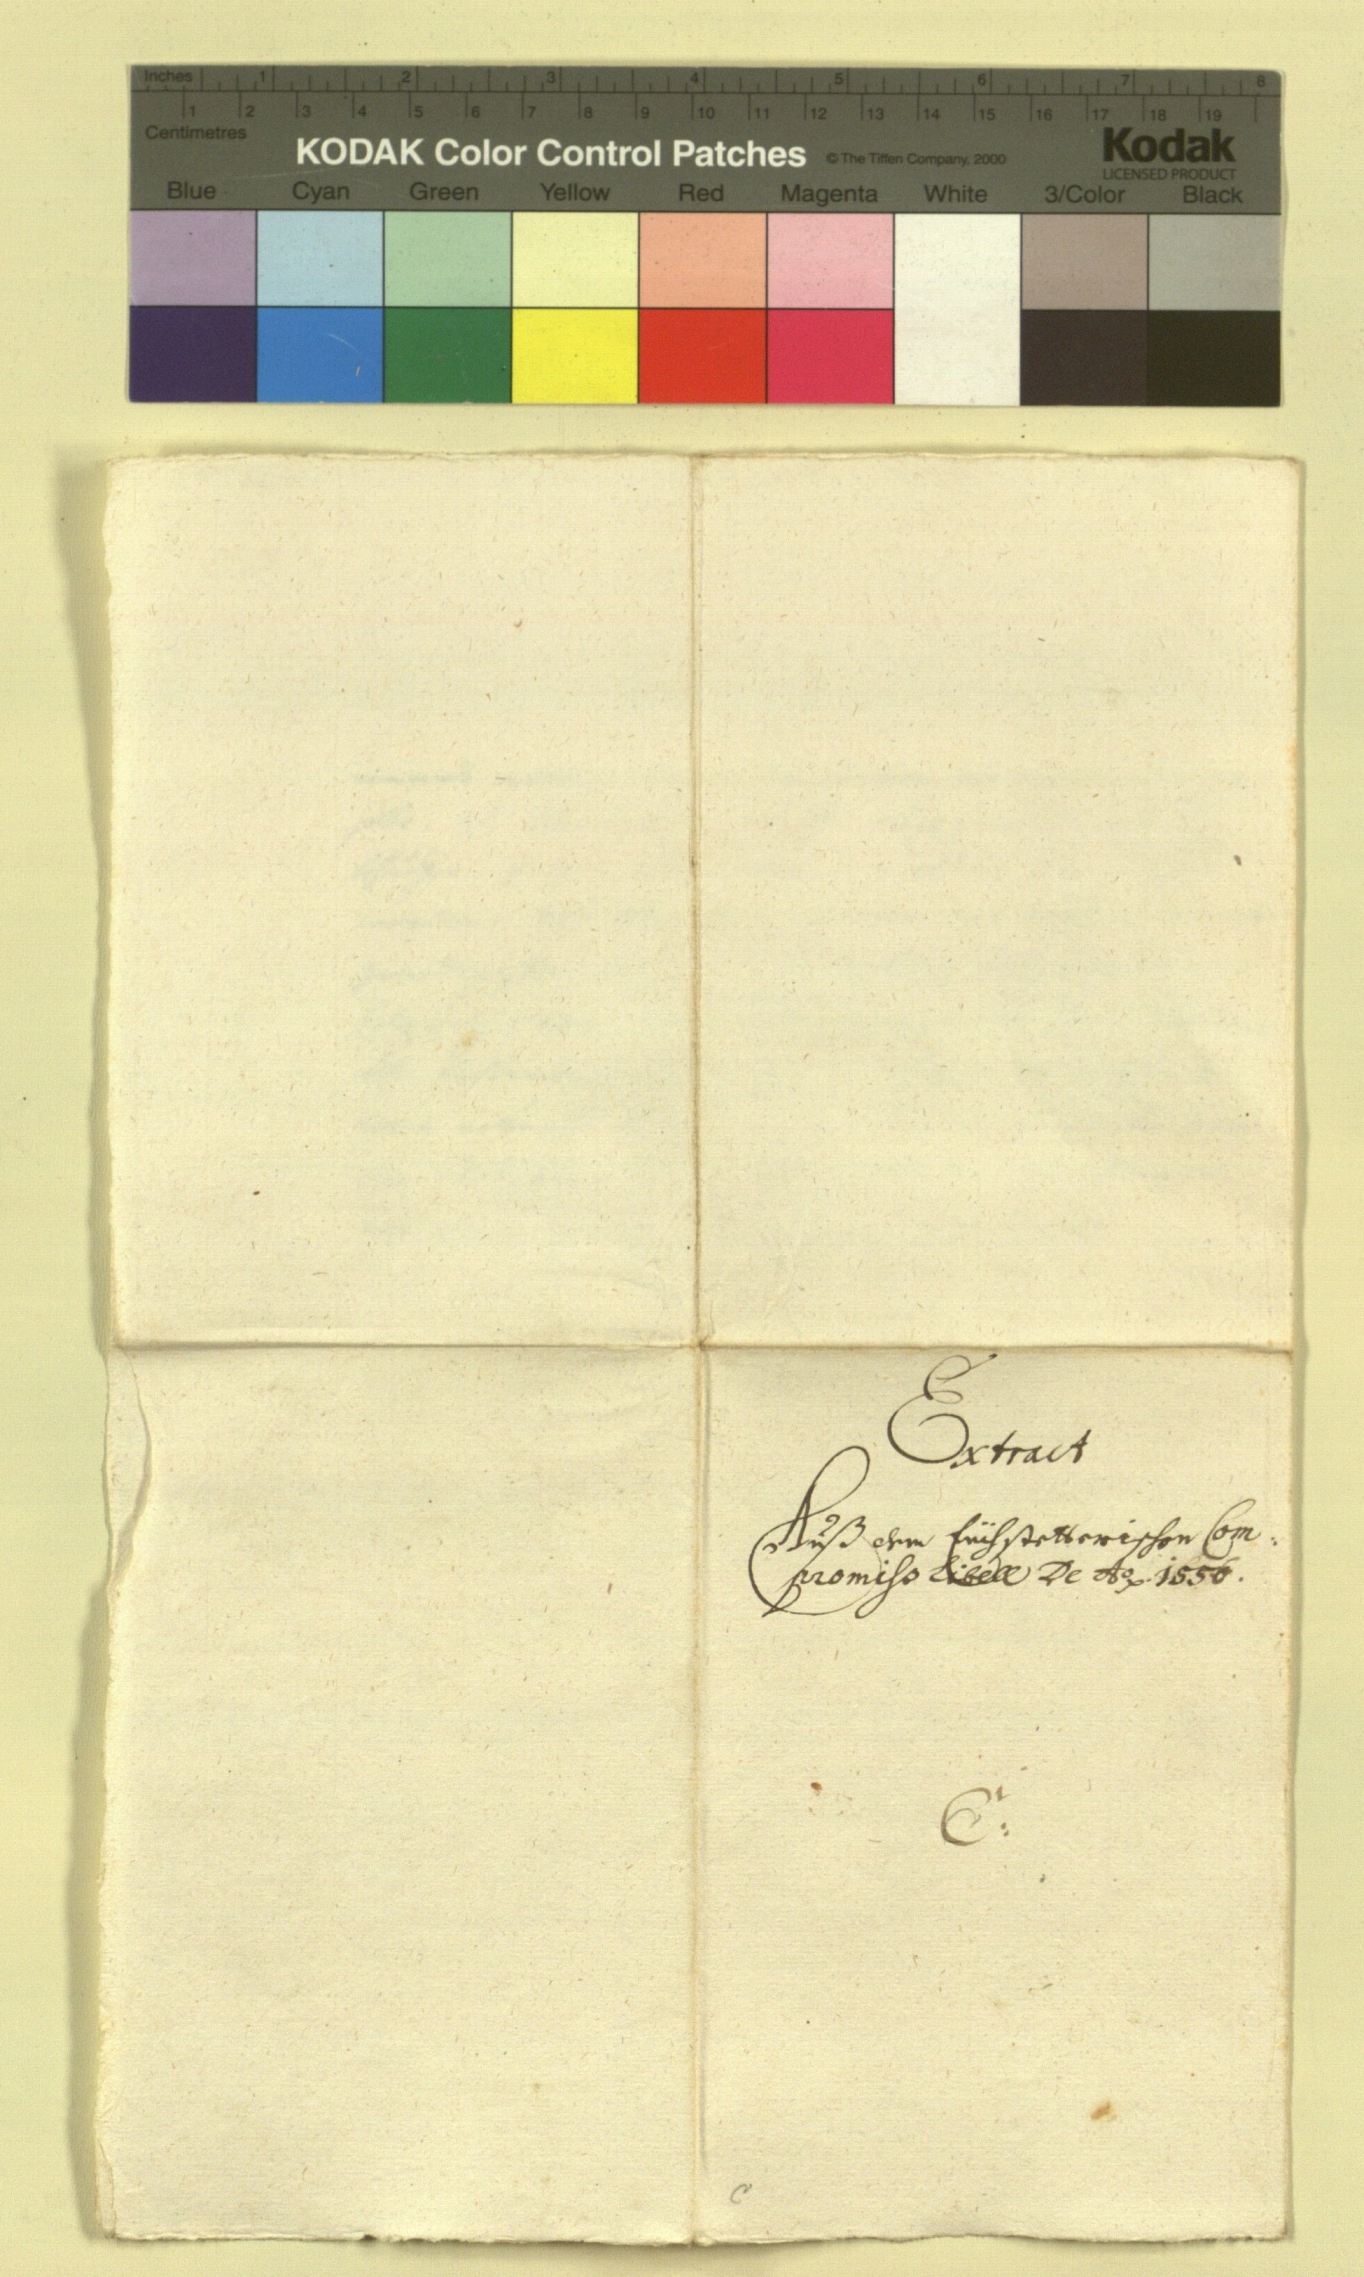 Inches 1 2 3 4 5 6 7 8
1 2 3 4 5 6 7 8 9 10 11 12 13 14 15 16 17 18 19
Centimetres
KODAK Color Control Patches © The Tiffen Company, 2000 Kodak
LICENSED PRODUCT
Blue Cyan Green Yellow Red Magenta White 3/Color Black
Extract
Auß dem Eychstetterischen Com:
promiss Libell De Ao. 1556.
C:
C